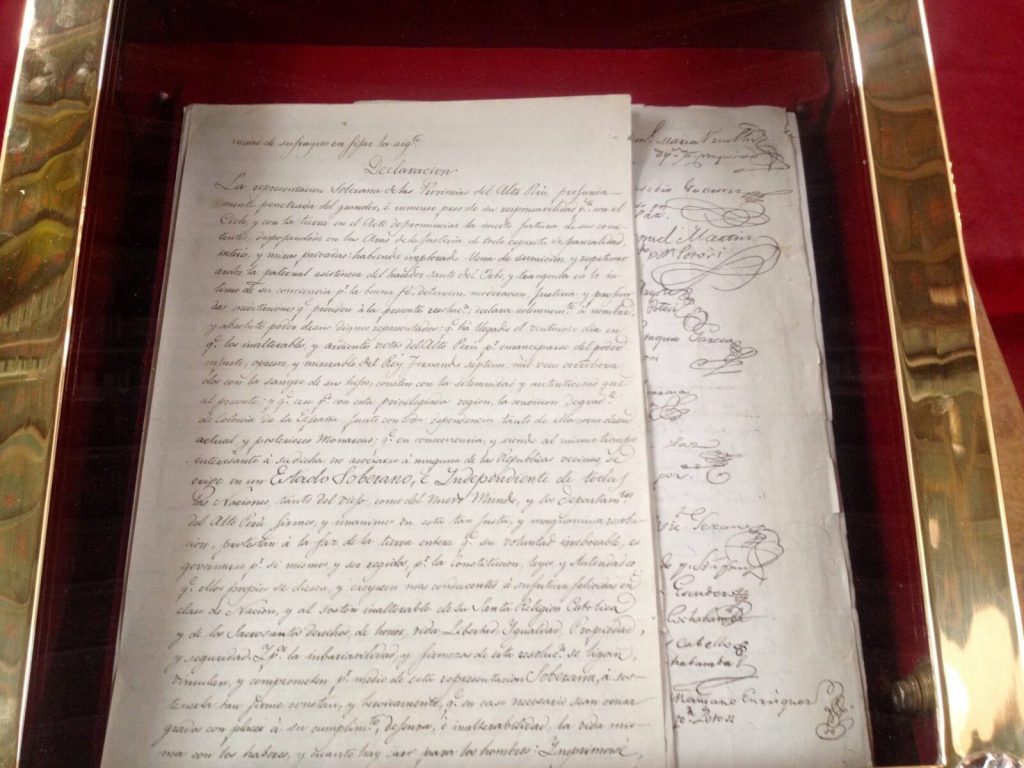 nidad de sufragios en fijar la sigte.
Declaracion
La representacion Soberana de las Provincias del Alto Perú, profunda-
mente penetrada del grandor, é inmenso peso de su responsabilidad pa. con el
Cielo, y con la tierra en el Acto de pronunciar la suerte futura de sus comi-
tentes, despojandose en las Aras de la Justicia de todo espiritu de parcialidad,
interés, y miras privadas; habiendo implorado llena de sumicion, y respetuoso
ardor la paternal asistencia del hacedor santo del Orbe, y tranquila en lo in-
timo de su conciencia pr. la buena fé, detencion, moderacion, Justicia, y profun-
das meditaciones qe. presiden á la presente resolun. declara solemnemte. á nombre,
y absoluto poder de sus dignos representados: qe. ha llegado el venturoso dia en
qe. los inalterables, y ardientes votos del Alto Perú pr. emanciparse del poder
injusto, opresor, y miserable del Rey Fernando septimo, mil veces corrobora-
dos con la sangre de sus hijos, consten con la solemnidad, y autenticidad que
al presente; y qe. cese pa. con esta privilegiada region, la condicion degradte.
de Colonia de la España, junto con toda dependencia, tanto de ella, como de su
actual, y posteriores Monarcas: qe. en consecuencia, y siendo al mismo tiempo
interesante á su dicha no asociarse á ninguna de las Republicas vecinas, se
erige en un Estado Soberano, é Independiente de todas
las Naciones, tanto del viejo, como del Nuevo Mundo, y los departamtos.
del Alto Perú firmes, y unanimes en esta tan justa, y magnanima resolu-
cion, protestan á la faz de la tierra entera qe. su voluntad irrebocable, es
governarse pr. si mismos, y ser regidos pr. la Constitucion, leyes, y Autoridades
qe. ellos propios se diesen, y creyesen mas conducentes á su futura felicidad en
clase de Nacion, y al sosten inalterable de su Santa Religion Catolica
y de los Sacrosantos derechos de honor, vida, Libertad, Igualdad, Propiedad,
y seguridad. Y pa. la inbariabilidad, y firmeza de esta resolun. se ligan,
vinculan, y comprometen pr. medio de esta representacion Soberana, á sos-
tenerla tan firme, constante, y heroicamente, qe. en caso necesario sean consa-
grados con placer á su cumplimto., defensa, é inalterabilidad, la vida mis-
ma con los haberes, y cuanto hay caro para los hombres. Imprimase,
Maria
Gutierrez
Paz.
Martin
pr. Potosi
Potosi
Garcia
Paz
por.
Escudero
Cochabamba
Cabello
Cochabamba
Mariano Enriquez
por Potosi